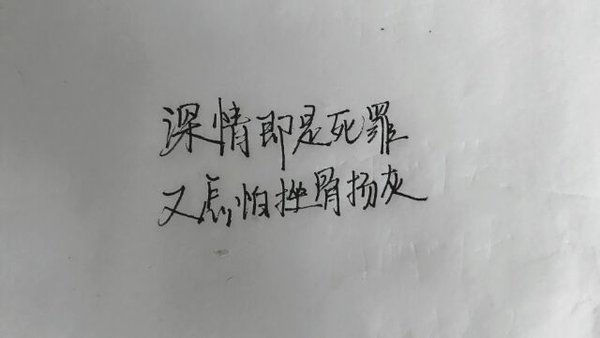 深情即是死罪
又焉怕挫骨扬灰